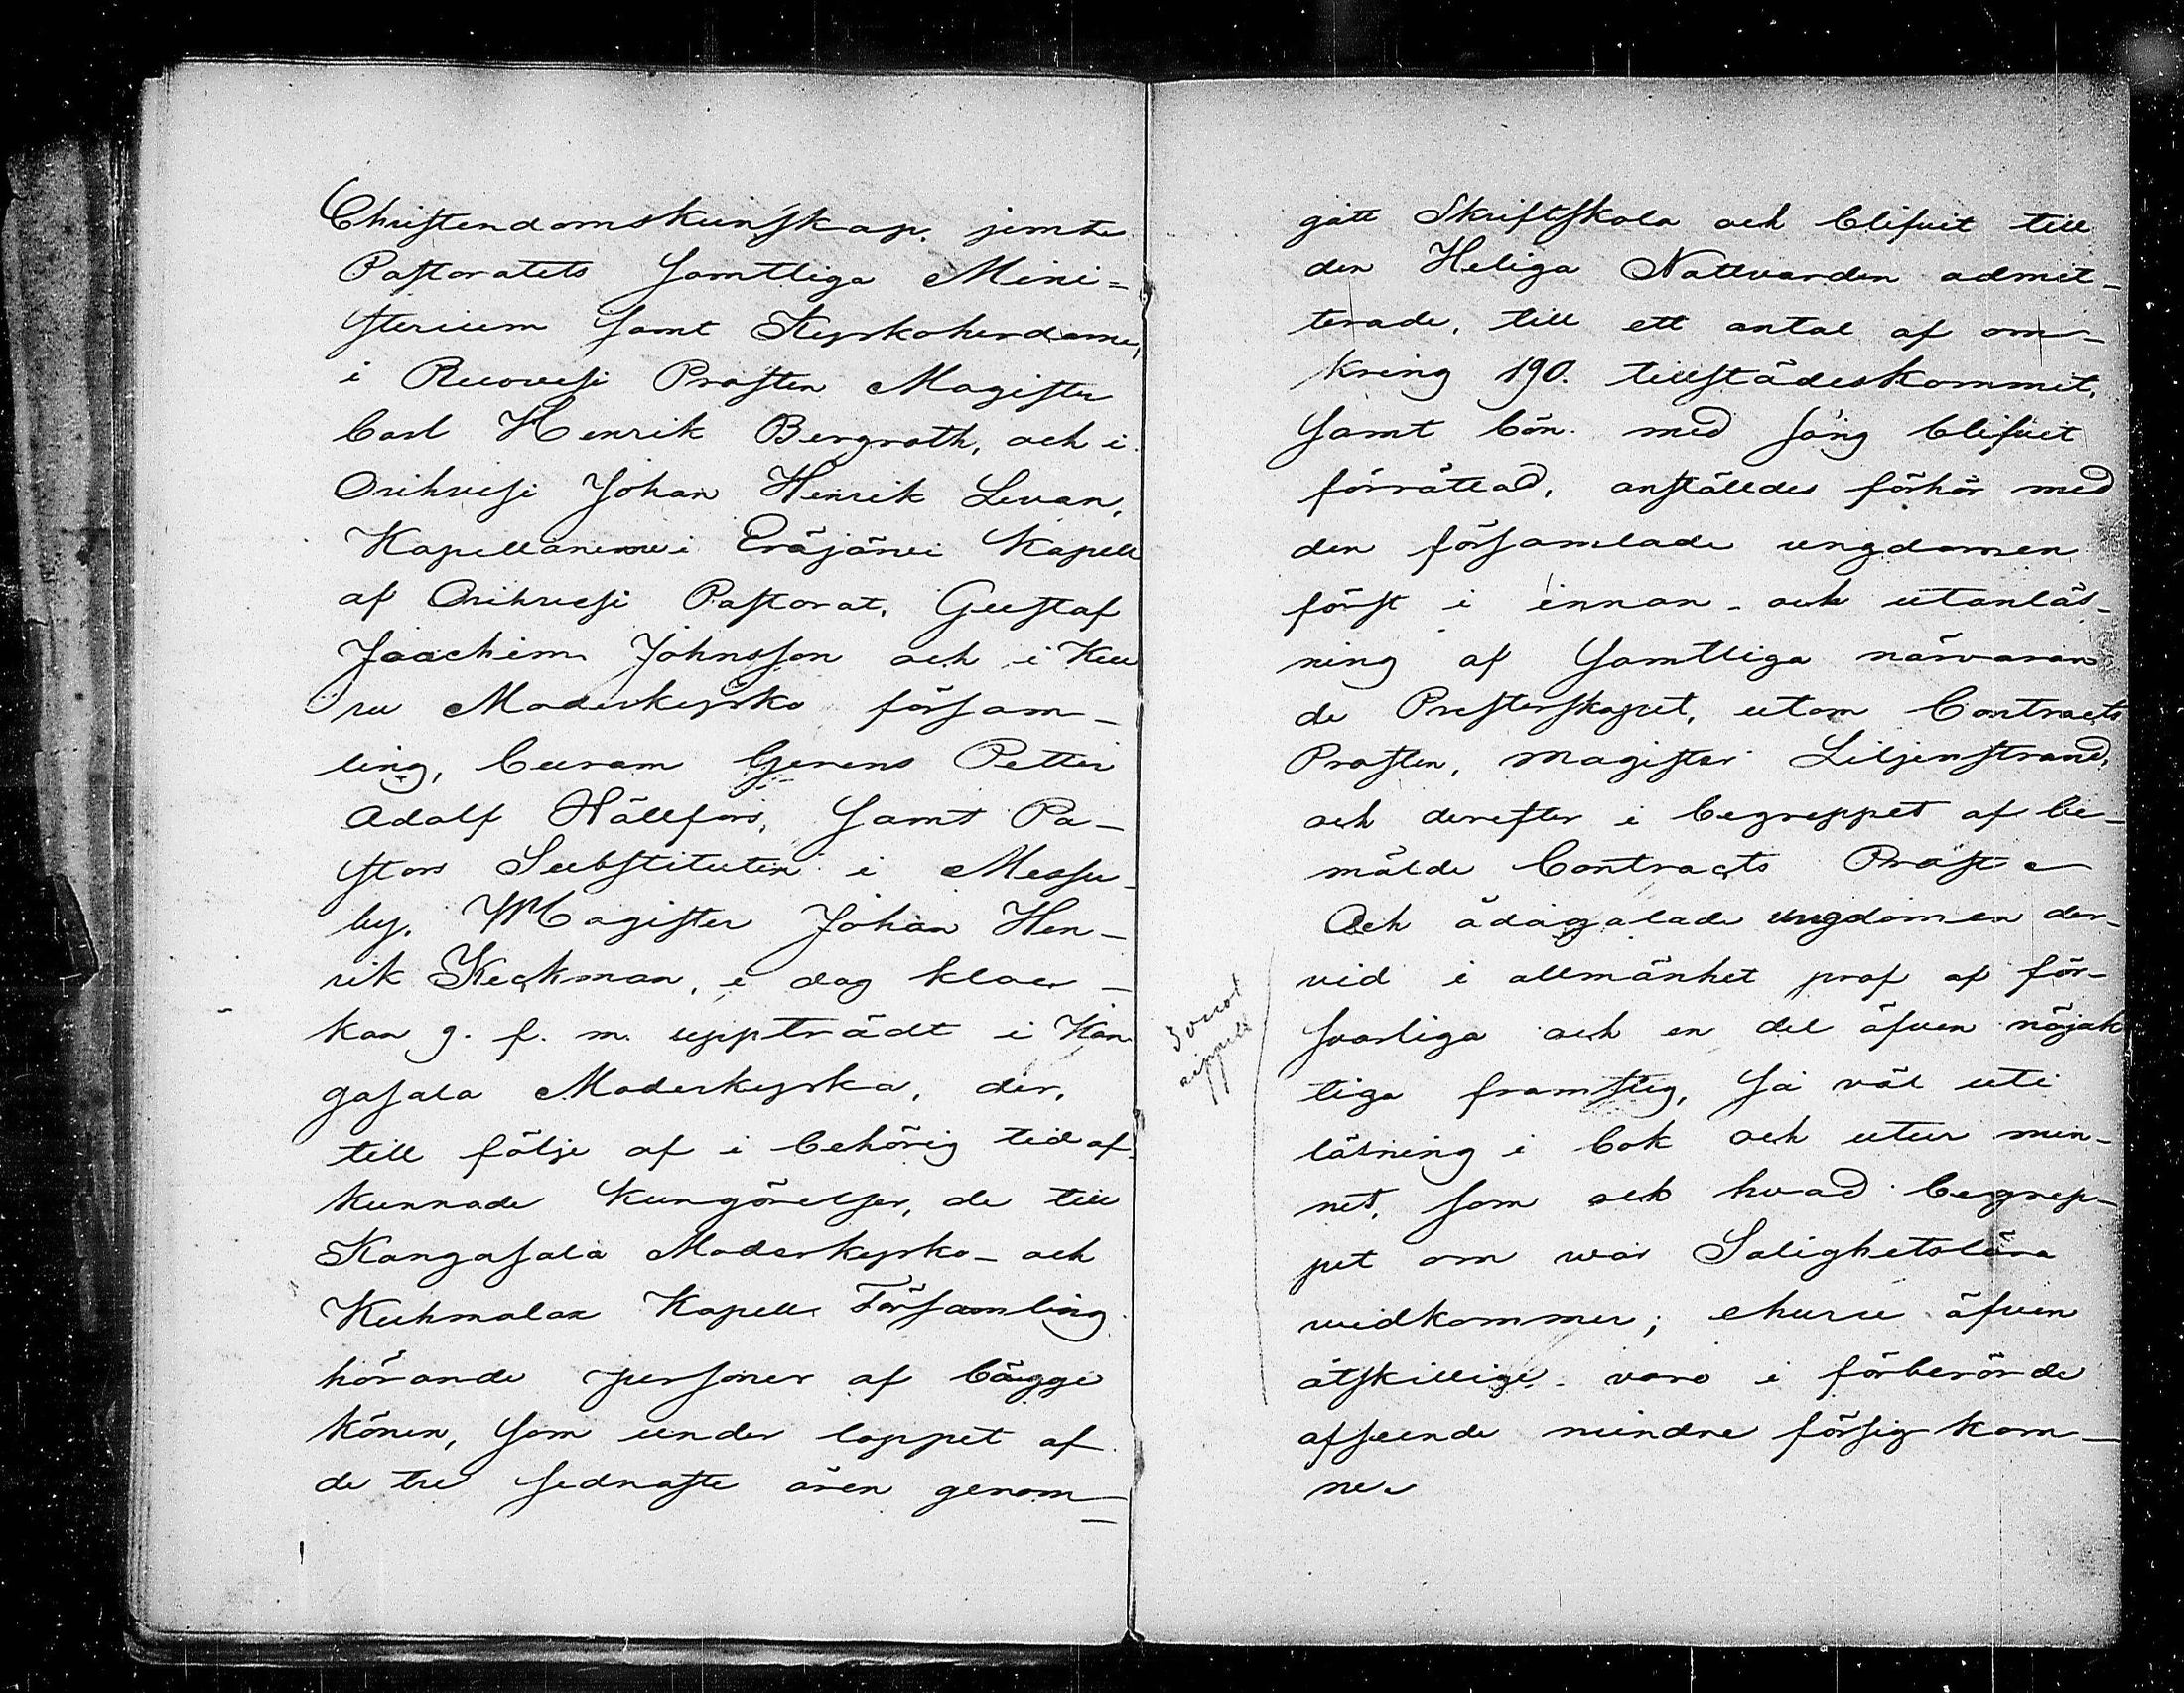 Christendomskunskap. jemte
Pastoratets samtliga Mini=
sterium samt Kyrkoherdarne,
i Ruovesi Prosten Magister
Carl Henrik Bergroth, och i
Orihvesi Johan Henrik Levan,
Kapellanerne i Eräjärvi Kapell
af Orihvesi Pastorat, Gustaf
Joachim Johnsson och i Kuu
ru Moderkyrko försam-
ling, Curam Gerens Petter
Adolf Hällfors, samt Pa-
stors Substituten i Messu-
by, Magister Johan Hen-
rik Keckman, i dag kloc-
kan 9. f. m. uppträdt i Kan
gasala Moderkyrka, der,
till följe af i behörig tid af-
kunnade kungörelser, de till
Kangasala Moderkyrko- och
Kuhmalax Kapell Församling
hörande personer af bägge
könen, som under loppet af
de tre sednaste åren genom-
gått Skriftskola och blifvit till
den Heliga Nattvarden admit-
terade, till ett antal af om-
kring 190. tillstädeskommit,
samt bön med sång blifvit
förrättad, anställdes förhör med
den församlade ungdomen
först i innan- och utanläs-
ning af samtliga närvaran
de Presterskapet, utom Contracts
Prosten, Magister Liljenstrand,
och derefter i begreppet af be-
mälde Contracts Prost
Och ådagalade ungdomen der-
vid i allmänhet prof af för-
svarliga och en del äfven nöjak
tiga framsteg, så väl uti
läsning i bok och utur min-
net, som ock hvad begrep-
pet om vår Salighetslära
widkommer; ehuru äfven
åtskillige voro i förberörde
afseende mindre försigkom-
ne.